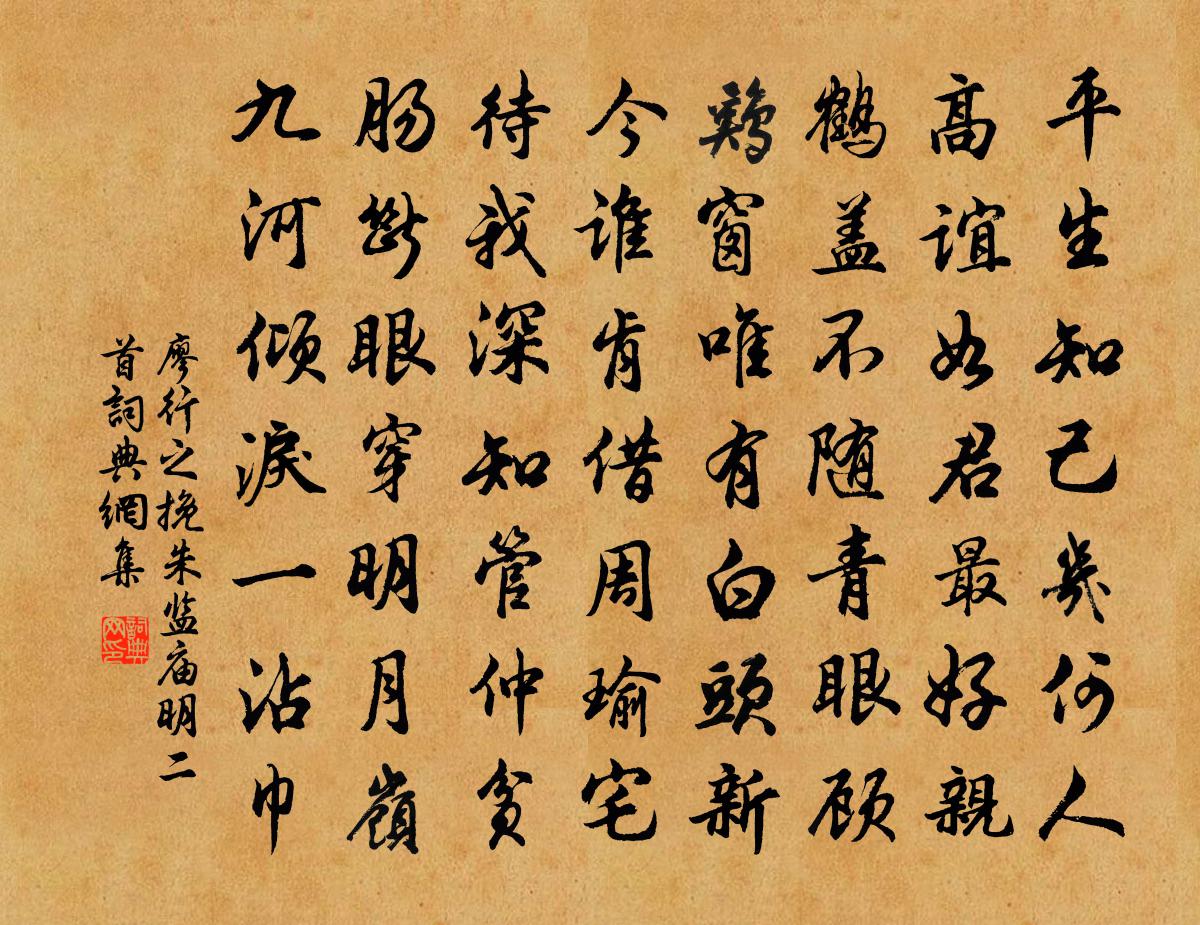 平生知己幾何人
高誼如君最好親
鶴盖不随青眼顾
鷄窗唯有白頭新
今谁肯借周瑜宅
待我深知管仲貧
肠斷眼穿明月嶺
九河倾淚一沾巾
廖行之挽朱监庙明二
首詞典網集
詞典网印